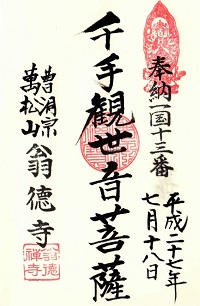 奉納一国十三番
平成二十七年
七月十八日
千手観世音菩薩
曹洞宗
萬松山
翁徳寺
翁徳
禅寺